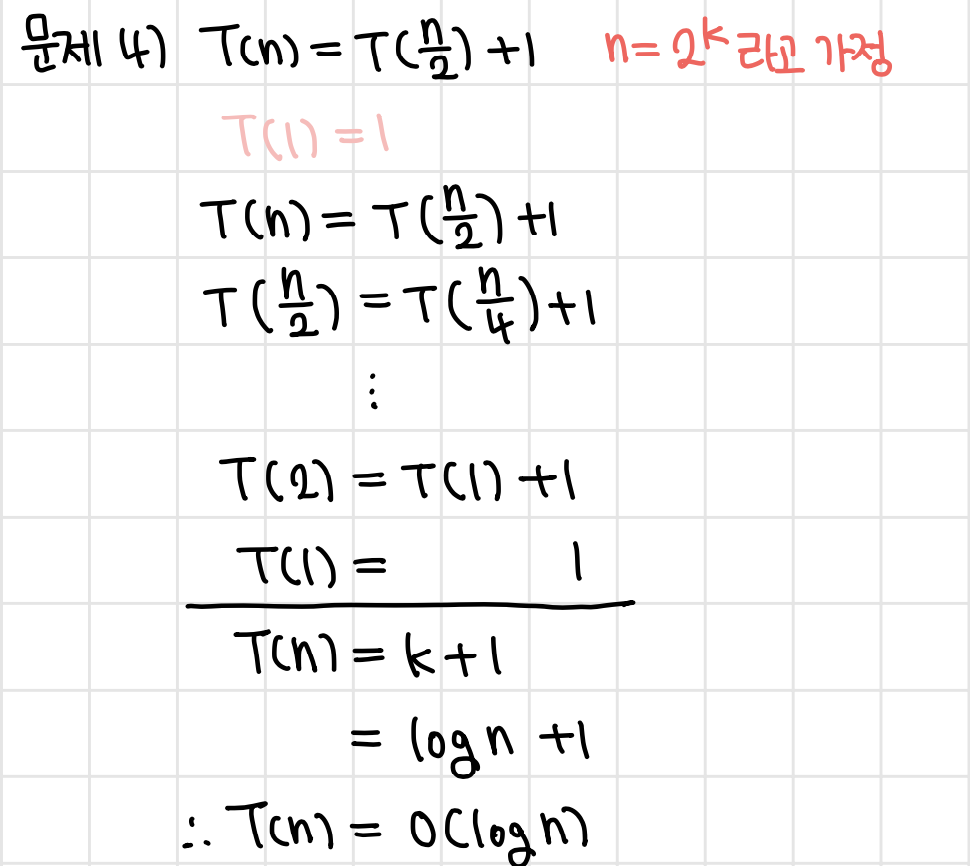 문제 4) T(n) = T(n/2) + 1 n = 2^k 라고 가정
T(1) = 1
T(n) = T(n/2) + 1
T(n/2) = T(n/4) + 1
⋮
T(2) = T(1) + 1
T(1) = 1
T(n) = k + 1
= log n + 1
∴ T(n) = O(log n)